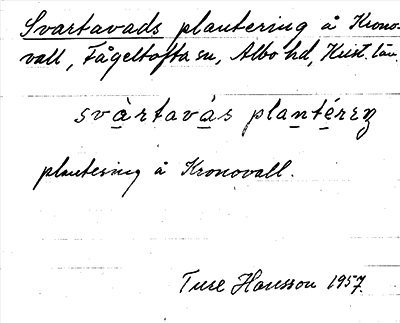 Svartavads plantering å Krono-
vall, Fågeltofta sn, Albo hd, Krist. län.
svàrtavás plantérıŋ
plantering å Kronovall.
Ture Hansson 1957.